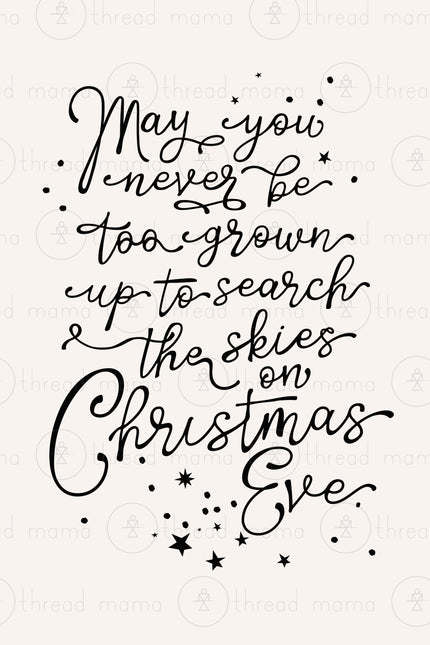 May you
never be
too grown
up to search
the skies
on
Christmas
Eve.
thread mama